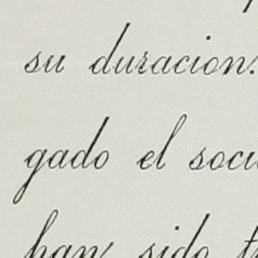 su duración.
gado el socu
han sido